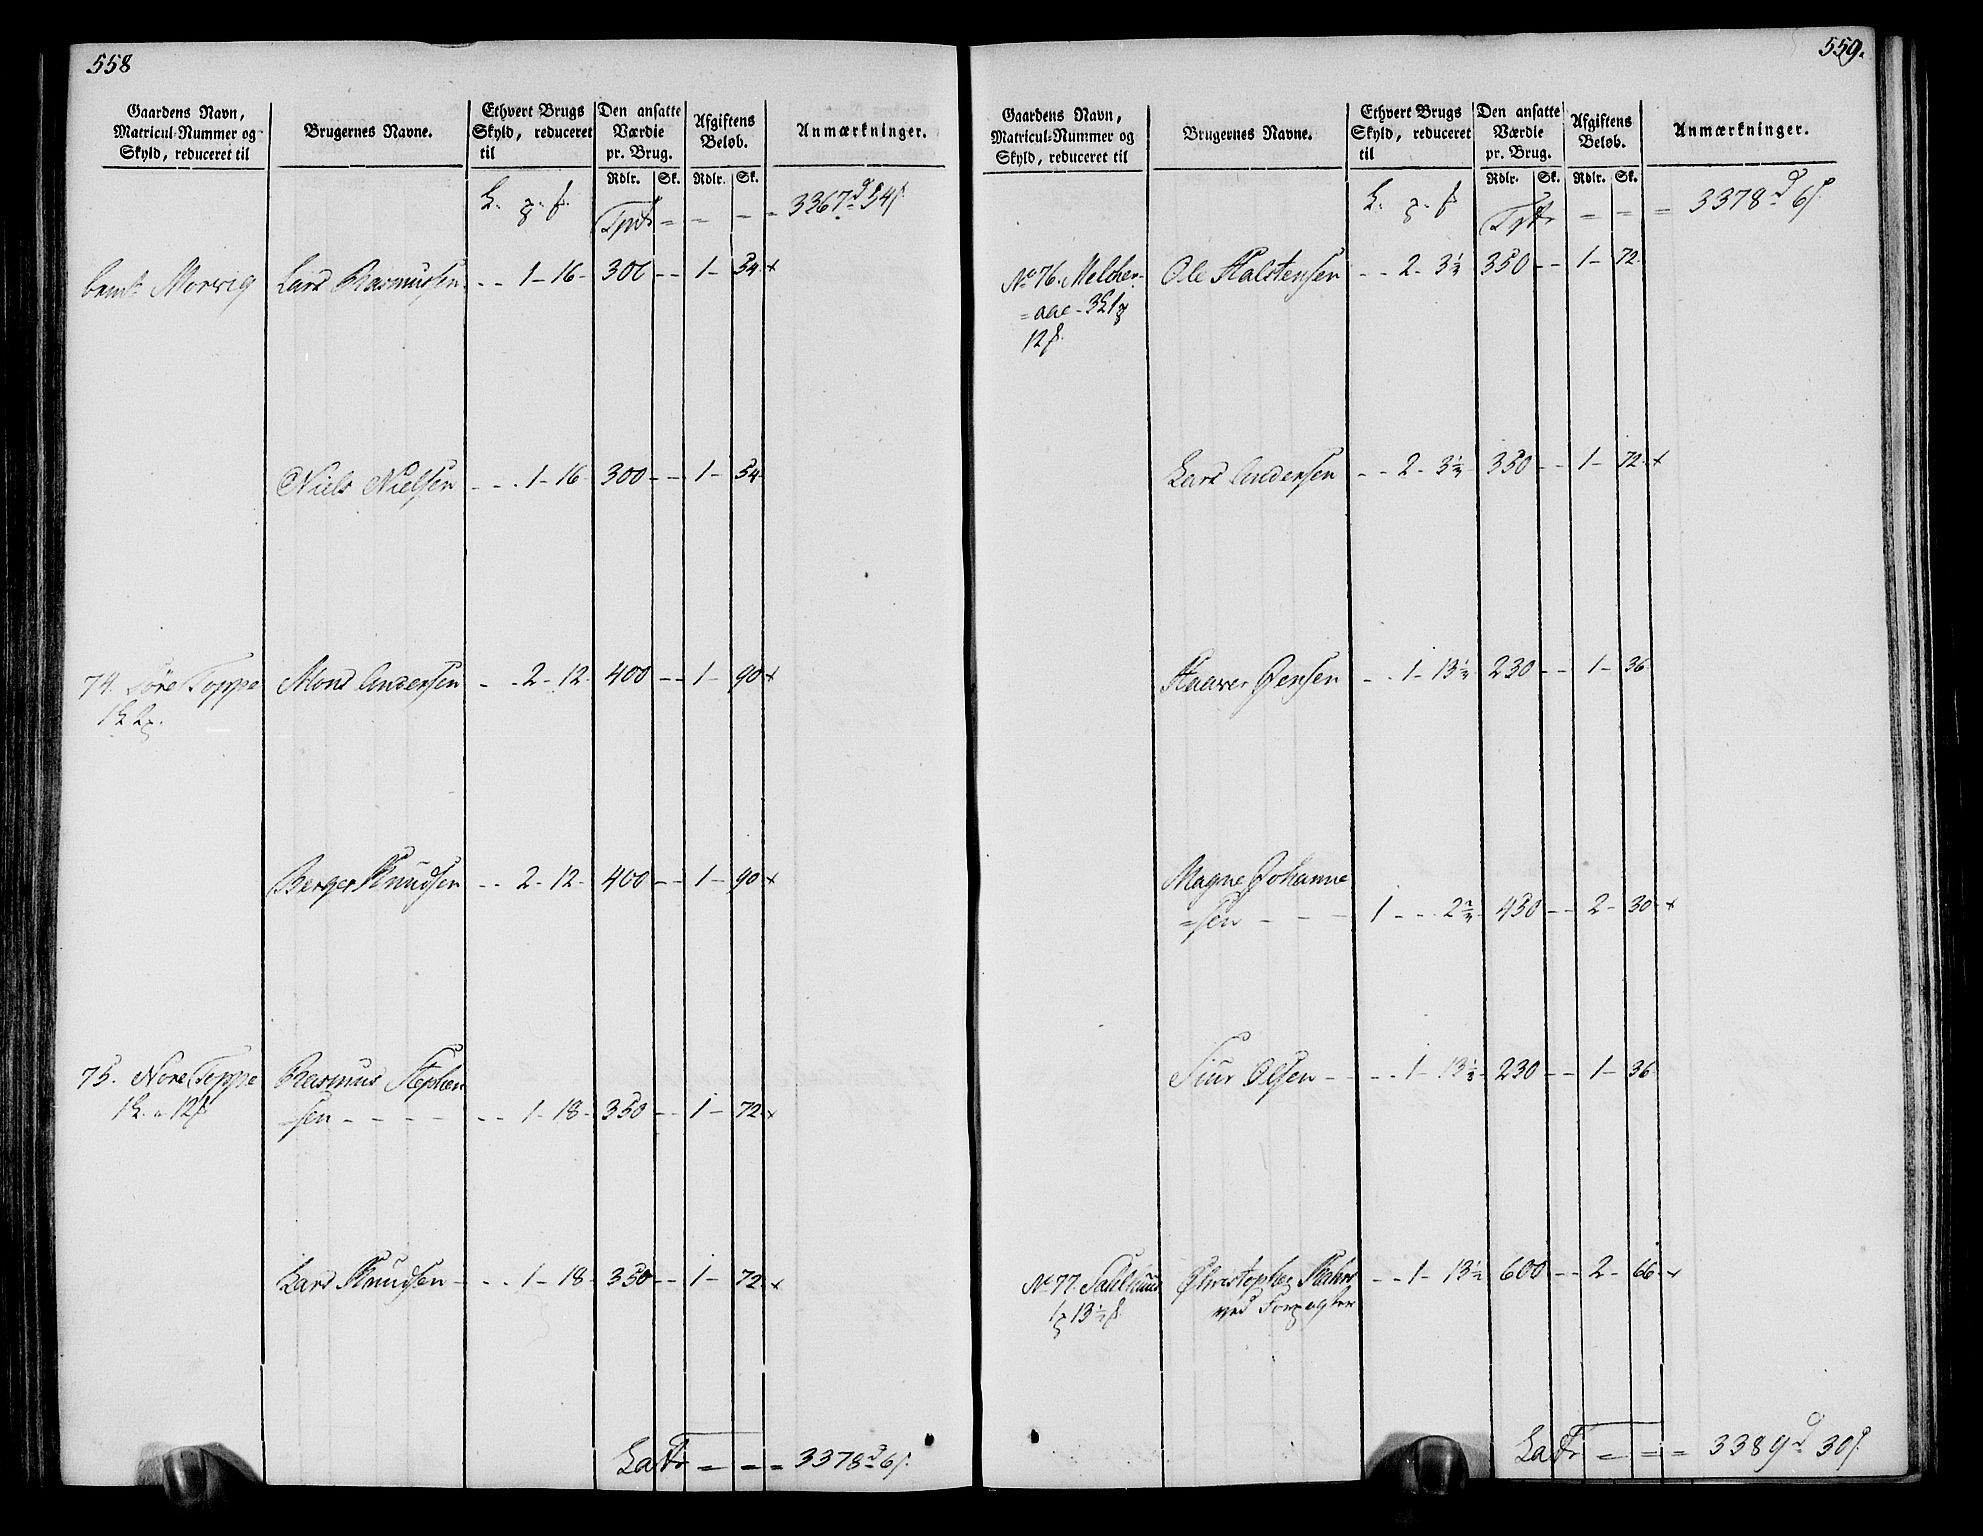 558
Gaardens Navn, Matricul-Nummer og Skyld, reduceret til
Brugernes Navne.
Ethvert Brugs Skyld, reduceret til
Den ansatte Værdie pr. Brug.
Afgiftens Beløb.
Anmærkninger.
Rdlr. Sk. Rdlr. Sk.
Tprtr = = - = 3367 d 54 s.
bemt. Morvig Lars Rasmussen - - 1 - 16 - 300 - - 1 - 54 +
Niels Nielsen - - 1 - 16 300 - - 1 - 54
74. Søre Toppe Mons Andersen - - 2 - 12 - 400 - - 1 - 90 +
Berger Knudsen - - 2 - 12 - 400 - - 1 - 90 +
75. Nore Toppe Rasmus Stephen
sen - - - - - - 1 - 18 - 350 - - 1 - 72 +
Lars Knudsen - - - 1 - 18 - 350 - - 1 - 72 +
Latr = = = 3378 d 6 s.
559.
Gaardens Navn, Matricul-Nummer og Skyld, reduceret til
Brugernes Navne.
Ethvert Brugs Skyld, reduceret til
Den ansatte Værdie pr. Brug.
Afgiftens Beløb.
Anmærkninger.
Rdlr. Sk. Rdlr. Sk.
Tprtr = = = 3378 d 6 s.
No 76. Melcher- Ole Halstensen - - 2 - 3½ 350 - - 1 - 72
= aae -
Lars Andersen - - 2 - 3½ 350 - - 1 - 72 +
Haaver Jensen - - 1 - 13½ 230 - - 1 - 36
Magne Johanne
=sen - - - 1 - - 2½ 450 - - 2 - 30 +
Siur Olsen - - - 1 - 13½ - 230 - - 1 - 36
No 77. Christopher - - 1 - 13½ 600 - - 2 - 66 +
ved Forpagter
Latr = = = 3389 d 30 s.